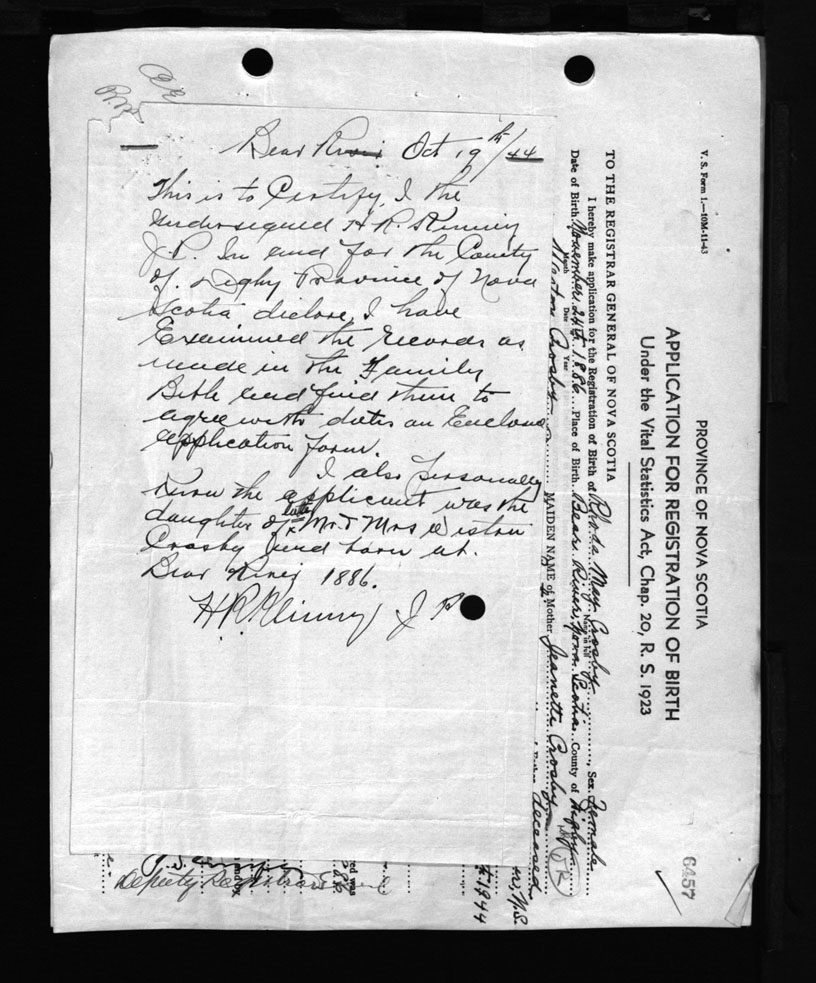 Bear River Oct 19th/44
This is to Certify, I the
undersigned H. R. Kinney
J.P. In and for the County
of Digby Province of Nova
Scotia diclare, I have
Examined the Records as
made in the Family
Bible and find them to
agree with dates on Enclosed
application form.
I also Personally
Know the applicant was the
daughter of late Mr & Mrs Weston
Crosby and born at
Bear River 1886.
H R Kinney J P
V. S. Form 1.—10M-11-43
PROVINCE OF NOVA SCOTIA
APPLICATION FOR REGISTRATION OF BIRTH
Under the Vital Statistics Act, Chap. 20, R. S. 1923
6457
TO THE REGISTRAR GENERAL OF NOVA SCOTIA
I hereby make application for the Registration of Birth of Rhoda May Crosby, Sex Female
Name in full
Date of Birth November 24th 1886 Place of Birth Bear River, Nova Scotia County of Digby
Month Date Year
Crosby MAIDEN NAME of Mother Jeanette Crosby
deceased
N.S.
1944
Deputy Registrar